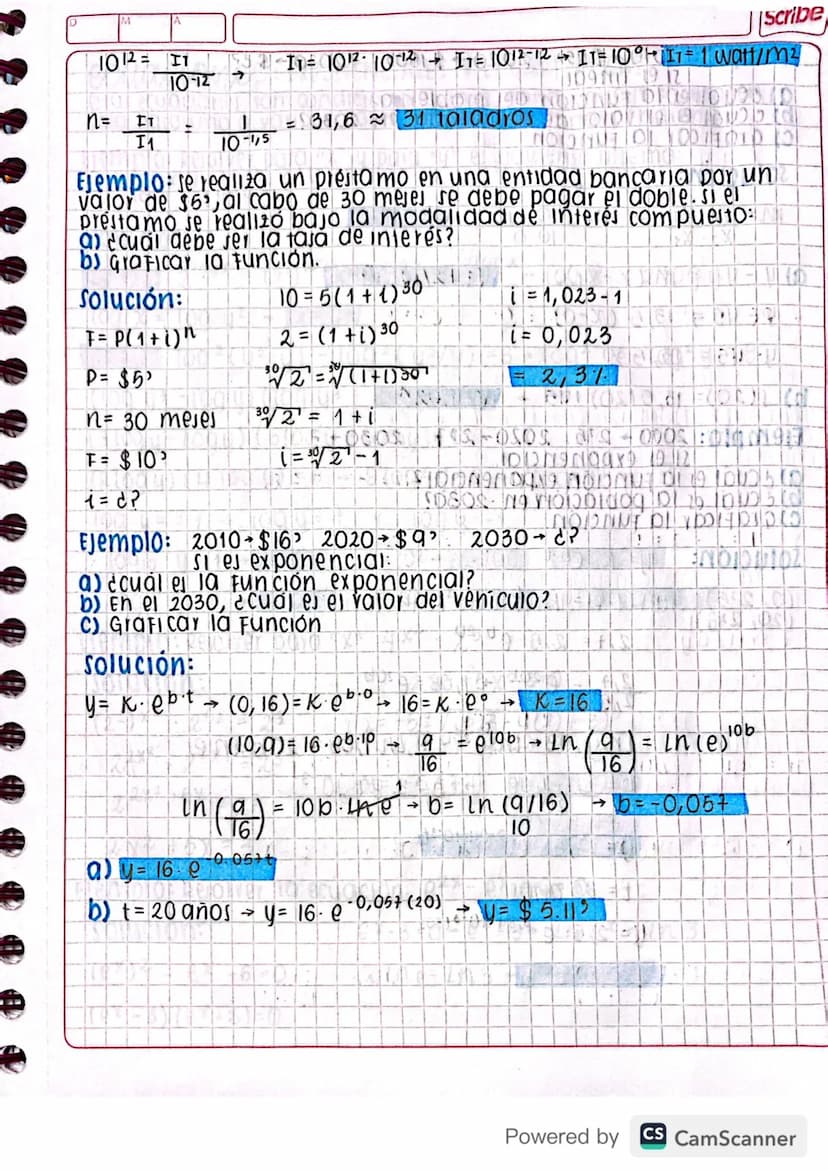 D M A
Scribe
10¹² = IT / 10⁻¹² → IT = 10¹² · 10⁻¹² → IT = 10¹²⁻¹² → IT = 10⁰ → IT = 1 watt/m²
n = IT / I1 = 1 / 10⁻¹,⁵ = 31,6 ≈ 31 taladros
Ejemplo: se realiza un préstamo en una entidad bancaria por un
valor de $5', al cabo de 30 meses se debe pagar el doble. si el
préstamo se realizó bajo la modalidad de interés compuesto:
a) ¿cuál debe ser la tasa de interés?
b) Graficar la función.
Solución: 10 = 5(1+i)³⁰ i = 1,023-1
F = P(1+i)ⁿ 2 = (1+i)³⁰ i = 0,023
P = $5' ³⁰√2 = ³⁰√(1+i)³⁰ = 2,3%
n = 30 meses ³⁰√2 = 1+i
F = $10' i = ³⁰√2 - 1
i = ¿?
Ejemplo: 2010→$16' 2020→$9' 2030→ ¿?
si es exponencial:
a) ¿cuál es la función exponencial?
b) En el 2030, ¿cuál es el valor del vehículo?
c) Graficar la función
Solución:
y = K·e^b·t → (0,16) = K·e^b·0 → 16 = K·e⁰ → K = 16
(10,9) = 16·e^b·10 → 9/16 = e^10b → Ln (9/16) = Ln (e)^10b
Ln (9/16) = 10b · Ln e 1 → b = Ln (9/16) / 10 → b = -0,057
a) y = 16·e^-0.057t
b) t = 20 años → y = 16·e^-0,057(20) → y = $5.11'
Powered by CS CamScanner